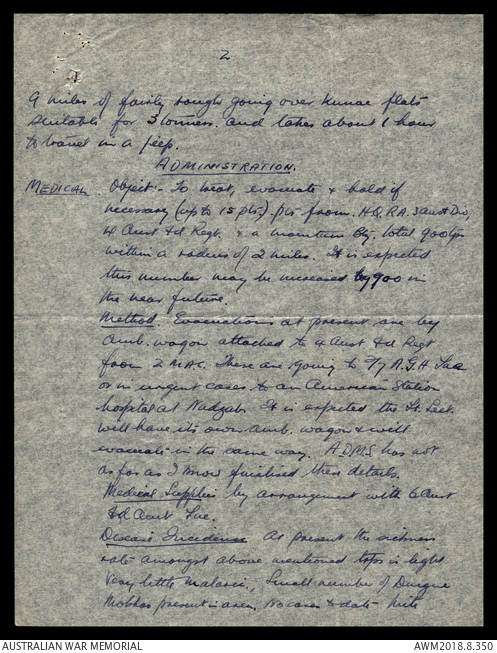 2
9 miles of fairly rough going over Kunai flats
suitable for 3 tonners. and takes about 1 hour
to travel in a jeep.
ADMINISTRATION.
MEDICAL. Object:- To treat, evacuate & hold if
necessary (up to 15 pts.) pts from H.Q. R.A. 3 Aust Div,
4 Aust Fd Regt. & a mountain Bty. total 900 tps
within a radius of 2 miles. It is expected
this number may be increased by 900 in
the near future.
Method. Evacuations at present are by
Amb. wagon attached to 4 Aust Fd Regt
from 2 M.A.C. These are going to 2/7 A.G.H Lae
or in urgent cases to an American Station
hospital at Nadzab. It is expected the Lt. Sect.
will have its own amb. wagon & will
evacuate in the same way. A.D.M.S has not
as far as I know finalised these details.
Medical Supplies by arrangement with 6 Aust
Fd Amb Lae.
Disease Incidence At present the sickness
rate amongst above mentioned tps is light
Very little malaria, Small number of Dengue
present in area, No cases to date
AUSTRALIAN WAR MEMORIAL
AWM2018.8.350